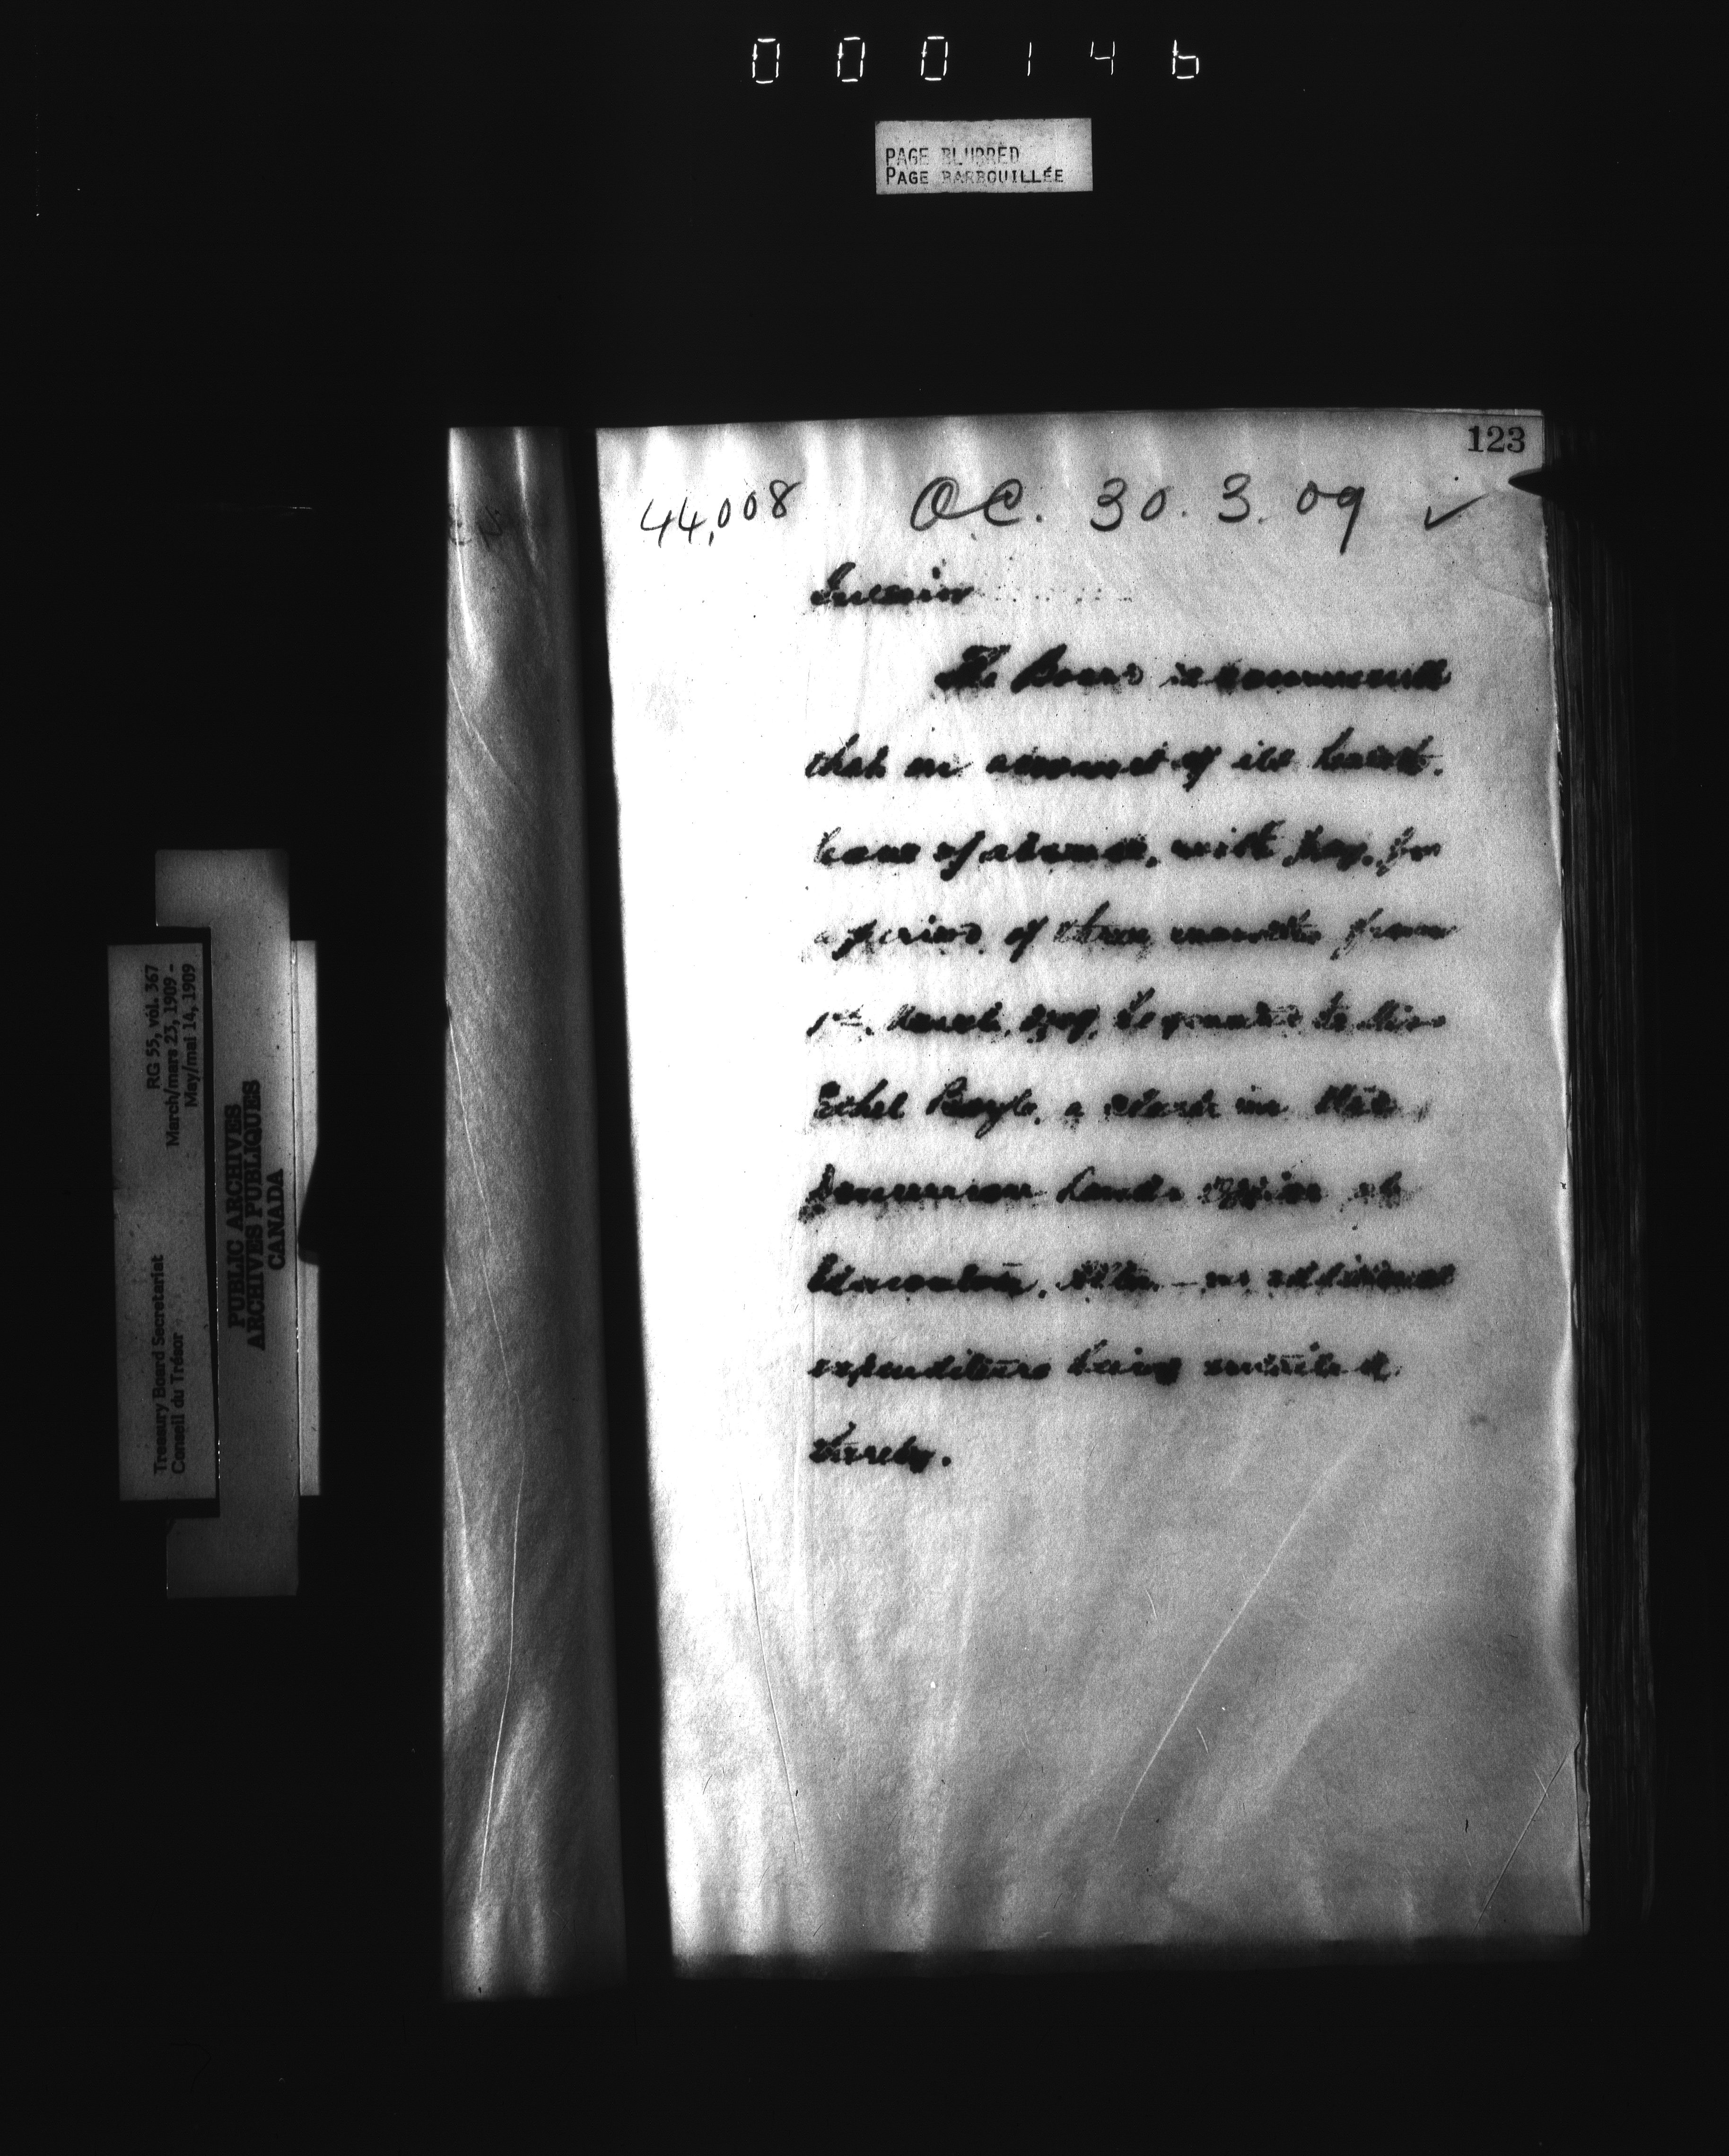 000146
PAGE BLURRED
PAGE BARBOUILLÉE
123
44,008 OC. 30. 3. 09 ✓
Interior
The Board recommend
that on account of ill health,
leave of absence, with pay, for
a period of three months from
1st. March, 1909, be granted to Miss
Ethel Boyle, a clerk in the
Dominion Lands Office at
Edmonton, Alta. — no additional
expenditure being entailed
thereby.
RG 55, vol. 367
March/mars 23, 1909 -
May/mai 14, 1909
Treasury Board Secretariat
Conseil du Trésor
PUBLIC ARCHIVES
ARCHIVES PUBLIQUES
CANADA